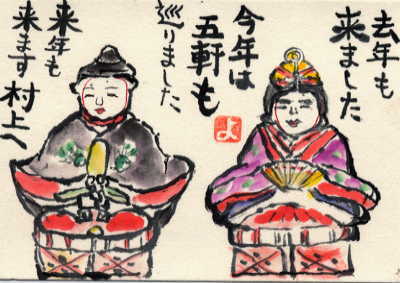 去年も
来ました
今年は
五軒も
巡りました
来年も
来ます 村上へ
よ